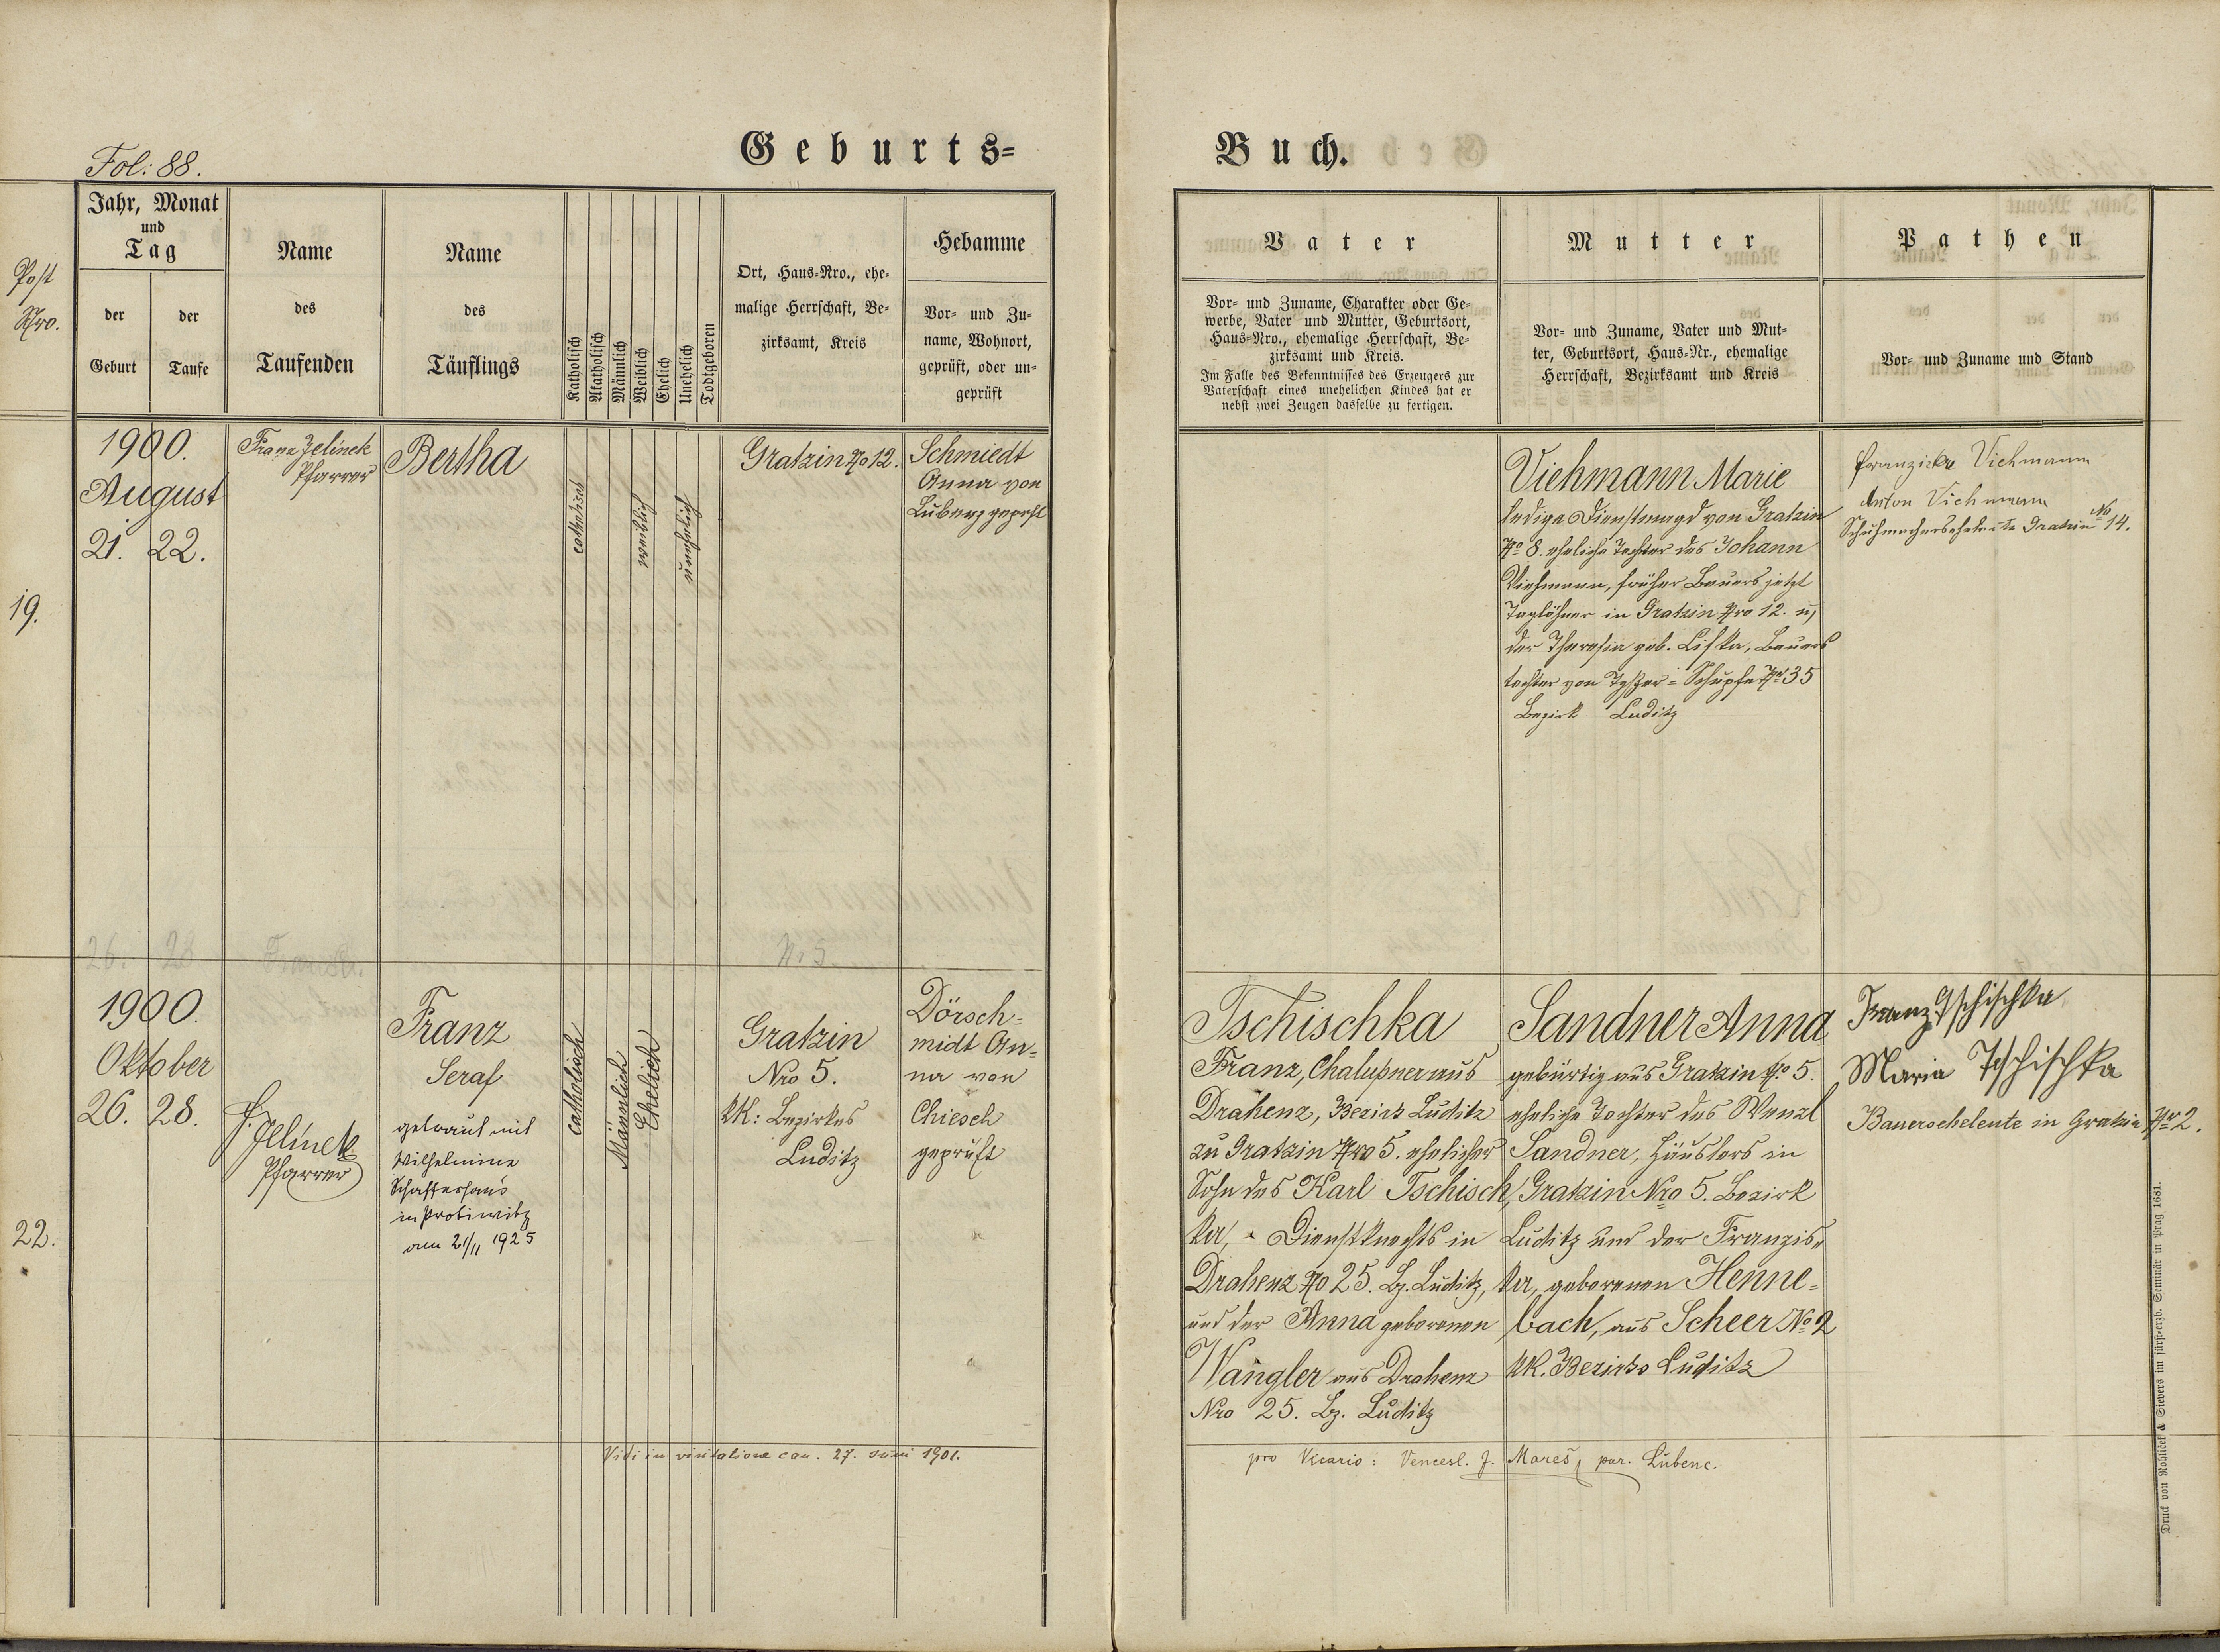 Geburts=
Buch.
Fol: 88.
Post
Nro.
Jahr, Monat
und
Tag
der
Geburt
der
Taufe
Name
des
Taufenden
Name
des
Täuflings
Katholisch
Akatholisch
Männlich
Weiblich
Ehelich
Unehelich
Todtgeboren
Ort, Haus-Nro., ehe-
malige Herrschaft, Be-
zirksamt, Kreis
Hebamme
Vor- und Zu-
name, Wohnort,
geprüft, oder un-
geprüft
Vater
Vor- und Zuname, Charakter oder Ge-
werbe, Vater und Mutter, Geburtsort,
Haus-Nro., ehemalige Herrschaft, Be-
zirksamt und Kreis.
Im Falle des Bekenntnisses des Erzeugers zur
Vaterschaft eines unehelichen Kindes hat er
nebst zwei Zeugen dasselbe zu fertigen.
Mutter
Vor- und Zuname, Vater und Mut-
ter, Geburtsort, Haus-Nr., ehemalige
Herrschaft, Bezirksamt und Kreis
Pathen
Vor- und Zuname und Stand
19.
1900.
August
21. 22.
Franz Jelinek
Pfarrer
Bertha
catholisch
weiblich
unehelich
Gratzin No 12.
Schmiedt
Anna von
Lubenz geprft
Viehmann Marie
ledige Dienstmagd von Gratzin
No 8. eheliche Tochter des Johann
Viehmann, früher Bauers jetzt
Taglöhner in Gratzin Nro 12. u,
der Theresia geb. Liska, Bauers
tochter von = Schupfe No 35
Bezirk Luditz
Franziska Viehmann
Anton Viehmann
Schuhmacherseheleute Gratzin No 14.
26. 28
No 5.
22.
1900.
Oktober
26. 28.
F. Jelinek
Pfarrer
Franz
Seraf
getraut mit
Wilhelmine
Schaffeshaus
in Protiwitz
am 21/11 1925
catholisch
Männlich
Ehelich
Gratzin
Nro 5.
kk: Bezirkes
Luditz
Dörsch=
midt An=
na von
Chiesch
geprüft
Tschischka
Franz, Chalupner aus
Drahenz, Bezirk Luditz
zu Gratzin Nro 5. ehelicher
Sohn des Karl Tschisch
ka, Dienstknechts in
Drahenz No 25. Bz. Luditz,
und der Anna geborenen
Wangler aus Drahenz
Nro 25. Bz. Luditz
Sandner Anna
gebürtig aus Gratzin No 5.
eheliche Tochter des Wenzl
Sandner, Häuslers in
Gratzin Nro 5. Bezirk
Luditz und der Franzis=
ka, geborenen Henne=
bach, aus Scheer No 2
kk. Bezirks Luditz
Franz Tschischka
Maria Tschischka
Bauerseheleute in Gratzin No 2.
Vidi in visitatione can. 27. Juni 1901.
pro Vicario: Vencesl. J. Mareš, par. Lubenc.
Druck von Rohliček & Sievers im fürst-erzb. Seminär in Prag 1681.